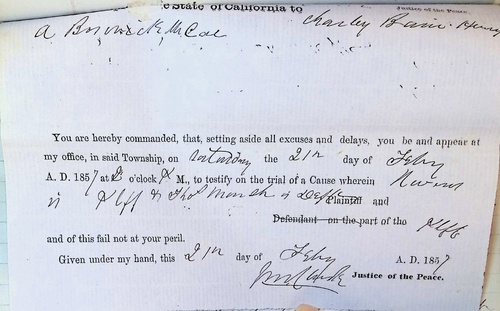 e State of California to
Justice of the Peace.
A McCoe
Charley Henry
You are hereby commanded, that, setting aside all excuses and delays, you be and appear at
my office, in said Township, on Saturday the 21st day of Feby
A. D. 1857 at 2 o'clock P M., to testify on the trial of a Cause wherein
is Plff & Thos Marsh is Deft Plaintiff and
Defendant on the part of the Plff
and of this fail not at your peril.
Given under my hand, this 21st day of Feby A. D. 1857
Justice of the Peace.